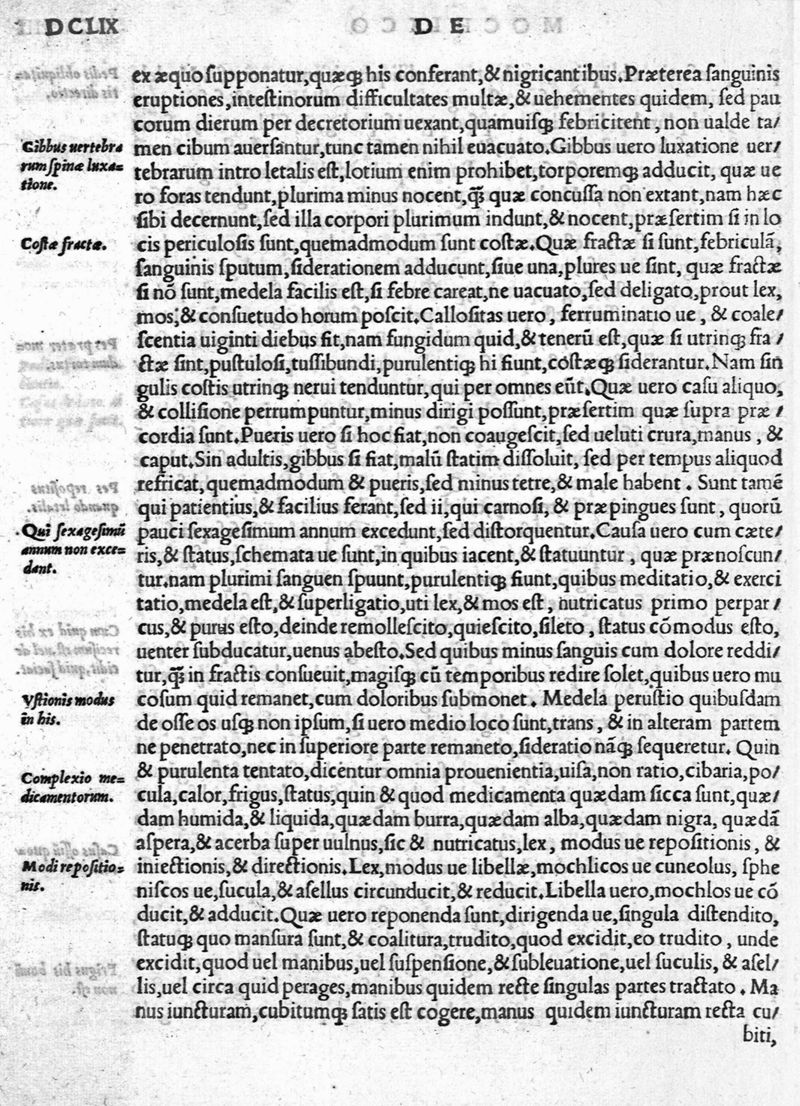 DCLIX DE
ex æquo ſupponatur,quæqꝫ his conferant,& nigricantibus.Præterea ſanguinis
eruptiones,inteſtinorum difficultates multæ,& uehementes quidem, ſed pau
corum dierum per decretorium uexant,quamuiſqꝫ febricitent, non ualde ta/
Gibbus uertebra
rum ſpinæ luxa=
tione.
men cibum auerſantur,tunc tamen nihil euacuato.Gibbus uero luxatione uer/
tebrarum intro letalis eſt,lotium enim prohibet,torporemqꝫ adducit, quæ ue
ro foras tendunt,plurima minus nocent,qꝫ̃ quæ concuſſa non extant,nam hæc
ſibi decernunt,ſed illa corpori plurimum indunt,& nocent,præſertim ſi in lo
Coſtæ fractæ.
cis periculoſis ſunt,quemadmodum ſunt coſtæ.Quæ fractæ ſi ſunt,febriculã,
ſanguinis ſputum,ſiderationem adducunt,ſiue una,plures ue ſint, quæ fractæ
ſi nõ ſunt,medela facilis eſt,ſi febre careat,ne uacuato,ſed deligato,prout lex,
mos,& conſuetudo horum poſcit.Calloſitas uero, ferruminatio ue, & coale/
ſcentia uiginti diebus fit,nam fungidum quid,& tenerũ eſt,quæ ſi utrinqꝫ fra/
ctæ ſint,puſtuloſi,tuſſibundi,purulentiqꝫ hi fiunt,coſtæqꝫ ſiderantur.Nam ſin
gulis coſtis utrinqꝫ nerui tenduntur,qui per omnes eũt.Quæ uero caſu aliquo,
& colliſione perrumpuntur,minus dirigi poſſunt,præſertim quæ ſupra præ/
cordia ſunt.Pueris uero ſi hoc fiat,non coaugeſcit,ſed ueluti crura,manus, &
caput.Sin adultis,gibbus ſi fiat,malũ ſtatim diſſoluit, ſed per tempus aliquod
refricat,quemadmodum & pueris,ſed minus tetre,& male habent. Sunt tamẽ
qui patientius,& facilius ferant,ſed ii,qui carnoſi, & præpingues ſunt, quorũ
Qui ſexageſimũ
annum non exce=
dant.
pauci ſexageſimum annum excedunt,ſed diſtorquentur.Cauſa uero cum cæte/
ris,& ſtatus,ſchemata ue ſunt,in quibus iacent,& ſtatuuntur, quæ prænoſcun/
tur.nam plurimi ſanguen ſpuunt,purulentiqꝫ fiunt,quibus meditatio,& exerci
tatio,medela eſt,& ſuperligatio,uti lex,& mos eſt, nutricatus primo perpar/
cus,& purus eſto,deinde remolleſcito,quieſcito,ſileto, ſtatus cõmodus eſto,
uenter ſubducatur,uenus abeſto.Sed quibus minus ſanguis cum dolore reddi/
tur,qꝫ̃ in fractis conſueuit,magiſqꝫ cũ temporibus redire ſolet,quibus uero mu
Vſtionis modus
in his.
coſum quid remanet,cum doloribus ſubmonet. Medela peruſtio quibuſdam
de oſſe os uſqꝫ non ipſum,ſi uero medio loco ſunt,trans, & in alteram partem
ne penetrato,nec in ſuperiore parte remaneto,ſideratio nãqꝫ ſequeretur. Quin
Complexio me=
dicamentorum.
& purulenta tentato,dicentur omnia prouenientia,uiſa,non ratio,cibaria,po/
cula,calor,frigus,ſtatus,quin & quod medicamenta quædam ſicca ſunt,quæ/
dam humida,& liquida,quædam burra,quædam alba,quædam nigra, quædã
aſpera,& acerba ſuper uulnus,ſic & nutricatus,lex, modus ue repoſitionis, &
Modi repoſitio=
nis.
iniectionis,& directionis.Lex,modus ue libellæ,mochlicos ue cuneolus, ſphe
niſcos ue,ſucula,& aſellus circunducit,& reducit.Libella uero,mochlos ue cõ
ducit,& adducit.Quæ uero reponenda ſunt,dirigenda ue,ſingula diſtendito,
ſtatuqꝫ quo manſura ſunt,& coalitura,trudito,quod excidit,eo trudito, unde
excidit,quod uel manibus,uel ſuſpenſione,& ſubleuatione,uel ſuculis, & aſel/
lis,uel circa quid perages,manibus quidem recte ſingulas partes tractato. Ma
nus iuncturam,cubitumqꝫ ſatis eſt cogere,manus quidem iuncturam recta cu/
biti,